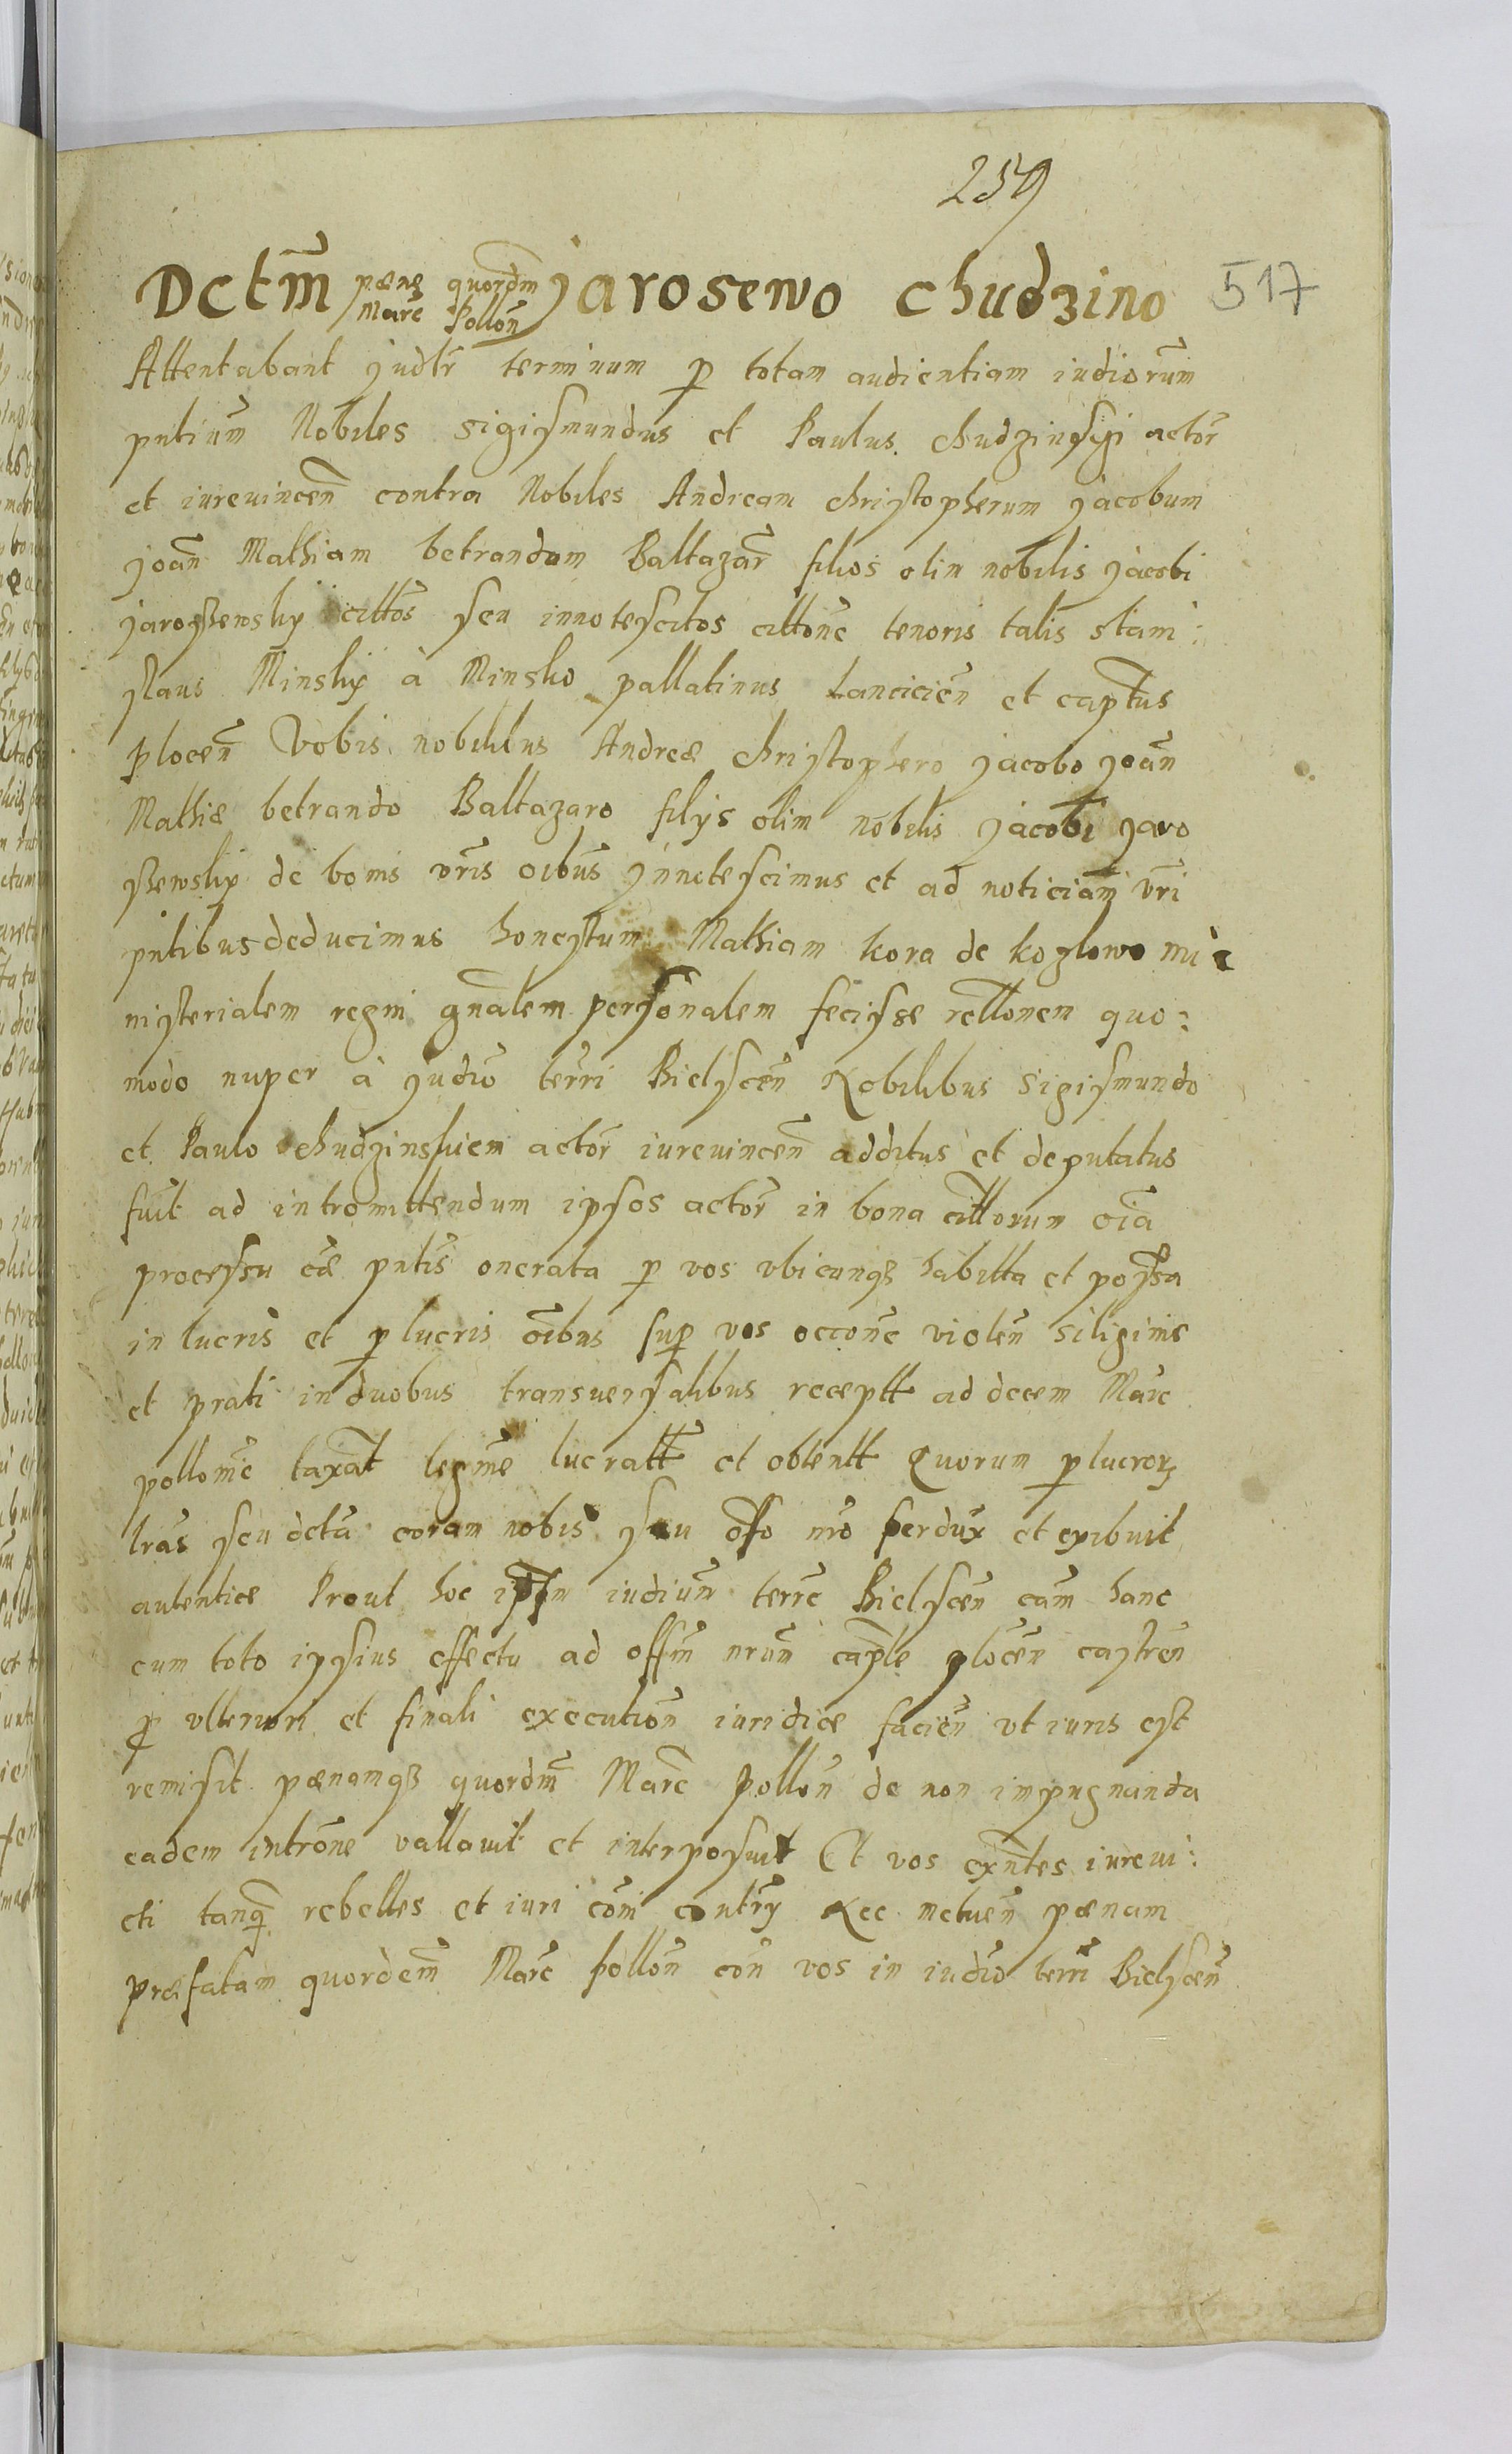 259
Dctm̃ pænæ quordm̃ Jarosewo Chudzino 517
Marc̃ Pollõn
Attentabant judlr̃ terminum p totam audientiam iudiorũm
pntiũm Nobiles Sigismundus et Paulus Chudzinsÿ actor̃
et iurevincen̄ contra Nobiles Andream Christopherum Jacobum
Joañ Mathiam betrandum Baltazar̃ filios olim nobilis Jacobi
Jarossewskÿ cittõs seu innotescitos cittõne tenoris talis Stani:
slaus Minskÿ à Minsko pallatinus Lanciciẽn et captũs
plocẽn Vobis nobilibus Andreæ Christophero Jacobo Joañ
Mathiæ betrando Baltazaro filÿs olim nobilis Jacobi Jaro
ssewskÿ de bonis vr̃is oĩbus Jnnotescimus et ad noticiãm vr̃i
pntibus deducimus honestum Mathiam kora de kozlowo mi
nisterialem regni gnãlem personalem fecisse rellõnem quo:
modo nuper à Judio terri Bielscẽn Nobilibus Sigismundo
et Paulo Chudzinskiem actor̃ iurevincẽn additus et deputatus
fuit ad intromittendum ipsos actor̃ in bona cittorum oĩa
processu cæ pntis onerata p vos ubicunqʒ habitta et possa
in lucris et p lucris oĩbus sup vos occõne violẽn siliginis
et prati in duobus transversalibus receptt ad decem Marc
pollõnic taxãt legm̃e lucratt̃ et obtentt Quorum plucrorʒ
lrãs seu dctũ coram nobis seu offo nr̃o perdux et exibuit
autentice Prout hoc ipsm iudiũm terr̃e Bielscẽn cãm hanc
cum toto ipsius effectu ad offm̃ nrũm cap̃le plocẽn castrẽn
p ulteriori et finali executiõn iuridice faciẽn ut iuris est
remisit pænamqʒ quordm̃ Marc̃ Pollõn de non impugnanda
eadem intrõne vallavit et interposuit Et vos exñtes iurevi:
cti tanq̃ rebelles et iuri cõmi contrÿ Nec metuẽn pænam
præfatam quordem̃ Marc̃ pollõn cõn vos in iudio terri Bielscẽn